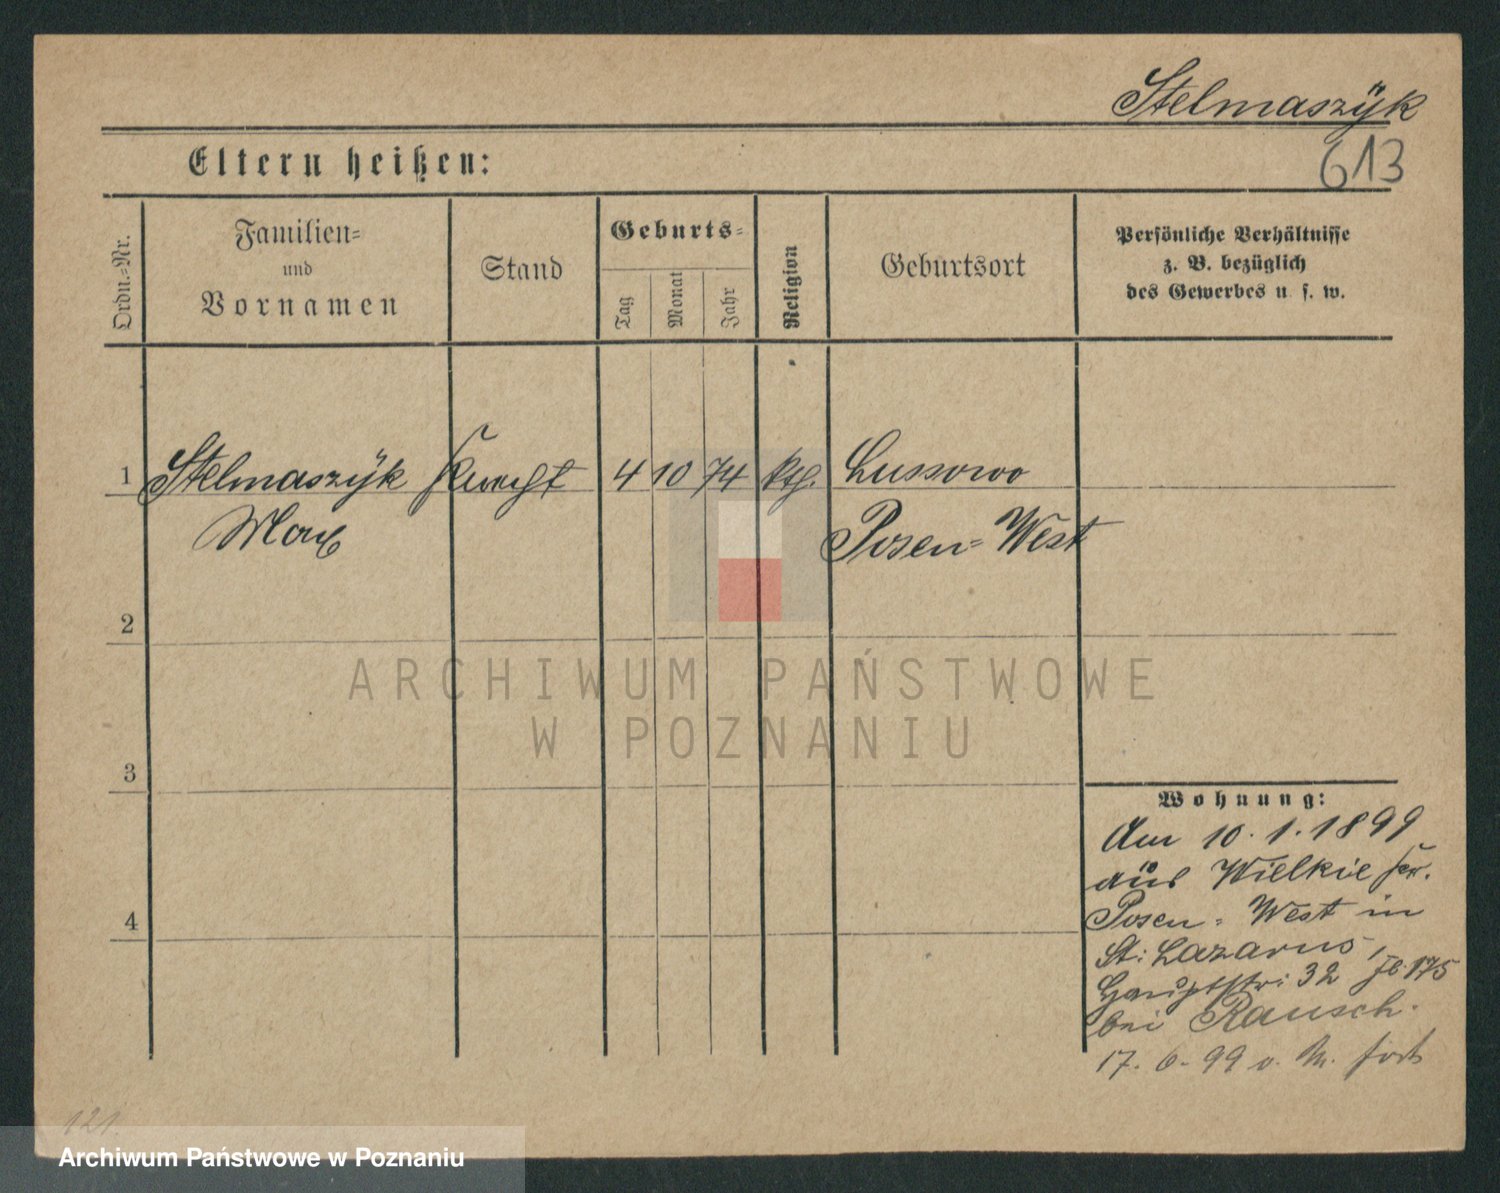 Stelmaszÿk
613
Eltern heißen:
Ordn.-Nr.
Familien-
und
Vornamen
Stand
Geburts-
Tag
Monat
Jahr
Religion
Geburtsort
Persönliche Verhältnisse
z. B. bezüglich
des Gewerbes u. s. w.
1 Stelmaszÿk Knecht 4 10 74 kth. Lussowo
Max Posen-West
2
3
4
Wohnung:
Am 10.1.1899
aus Wielkie
Posen-West in
St. Lazarus,
Hauptstr. 32 175
bei Rausch.
17.6.99 fort
121.
ARCHIWUM PAŃSTWOWE
W POZNANIU
Archiwum Państwowe w Poznaniu